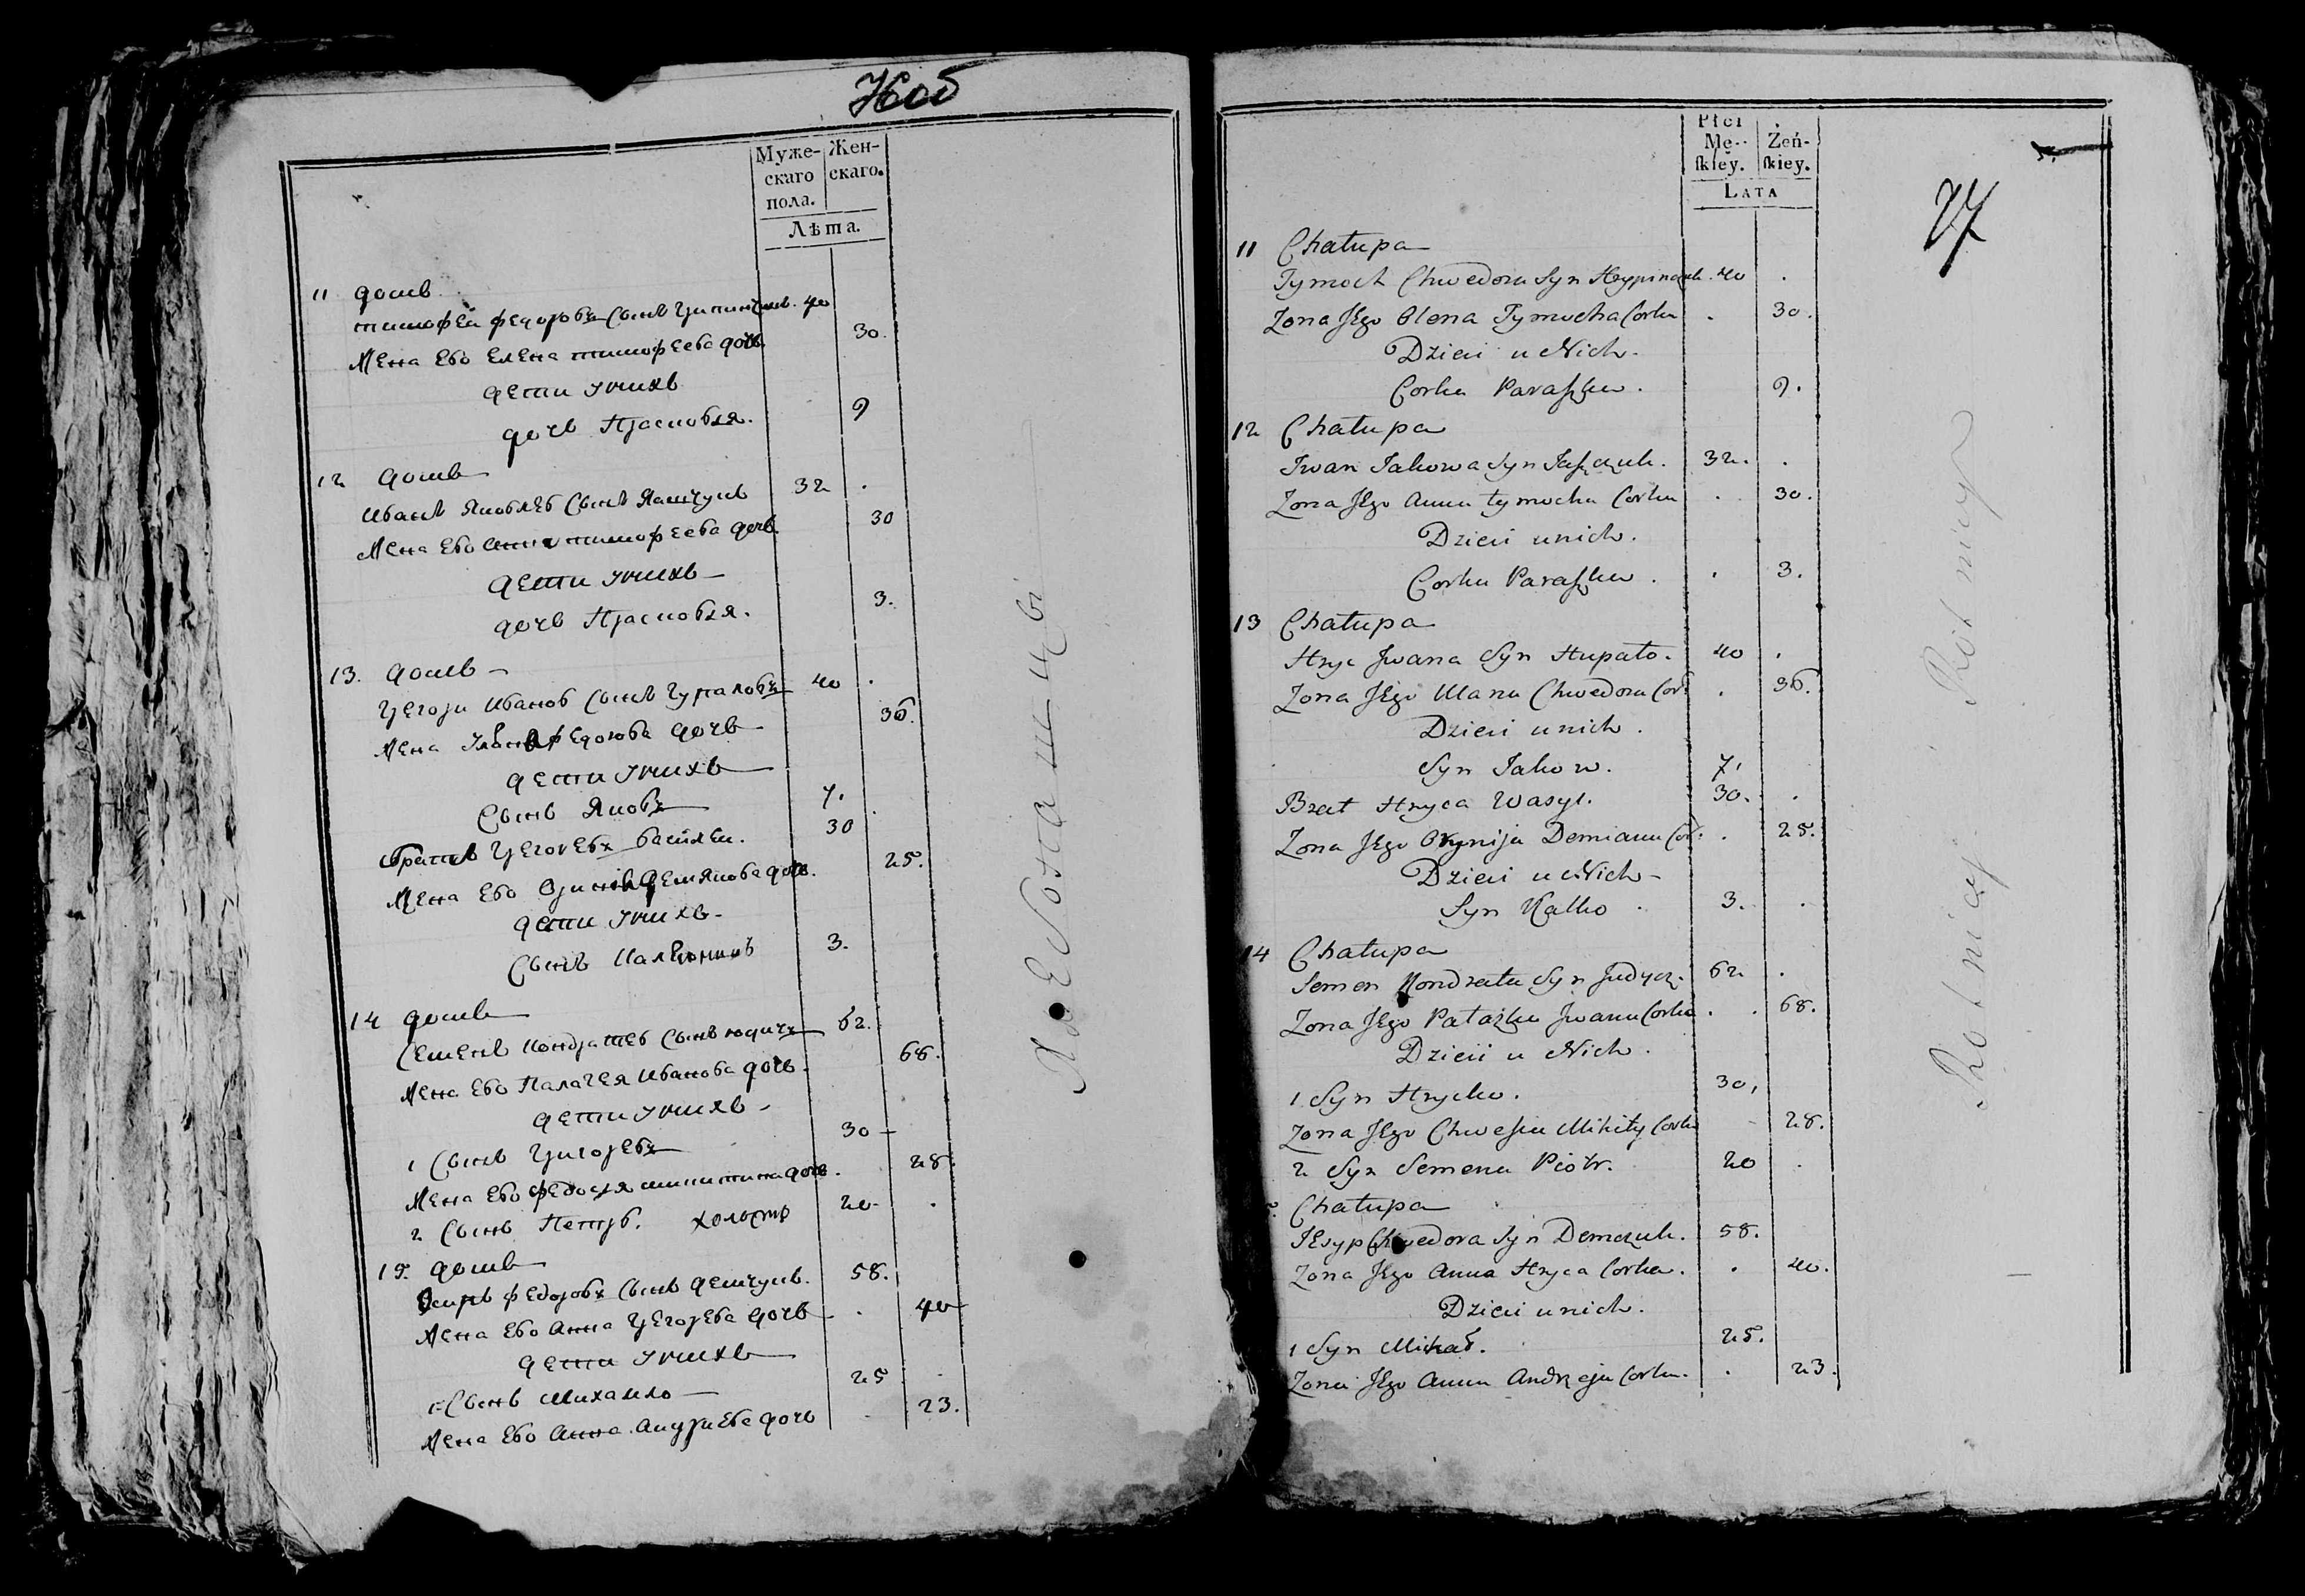 Муже-
скаго
пола.
Жен-
скаго.
Лѣта.
11 домъ
тимофеи федоровъ сынъ 40
жена ево елена тимофеева дочь 30.
дети у нихъ
дочь Прасковья. 9
12 домъ
иванъ яковлев сынъ яшчукъ 32 .
жена ево анна тимофеева дочь 30
дети у нихъ
дочь Прасковья. 3.
13. домъ
иванов сынъ 40 .
жена федорова дочь 36.
дети у нихъ
сынъ яковъ 7.
братъ василеи. 30
жена ево демянова дочь. 25.
дети у нихъ
сынъ 3.
14 домъ
семенъ кондратев сынъ юдичъ 62.
жена ево Палагея иванова дочь. 68.
дети у нихъ
1 сынъ 30
жена ево федосья микитина дочь. 28.
2 сынъ Петръ. холостъ 20 .
15. домъ
федоровъ сынъ демчукъ. 58.
жена ево анна дочь . 40
дети у нихъ
1 сынъ михаило 25
жена ево анна андриева дочь . 23.
Płci
Mę-
skiey.
Żeń-
skiey.
LATA
27
11 Chałupa
Tymoch Chwedora Syn 40 .
Zona Jego Olena Tymocha Corka . 30.
Dzieci u Nich.
Corka Paraszka. 9.
12 Chałupa
Iwan Jakowa Syn Jaszczuk. 32. .
Zona Jego Anna tymocha Corka . 30.
Dzieci u nich.
Corka Paraszka. . 3.
13 Chałupa
Hryc Jwana Syn Hupało. 40 .
Zona Jego Ulana Chwedora Cor: . 36.
Dzieci u nich.
Syn Jakow. 7.
Brat Hryca Wasyl. 30. .
Zona Jego Demiana Cor: . 25.
Dzieci u Nich
Syn Kalko . 3. .
14 Chałupa
Semen Kondrata Syn Judycz. 62 .
Zona Jego Pałażka Jwana Corka . . 68.
Dzieci u Nich.
1 Syn Hrycko. 30,
Zona Jego Chwesia Mikity Corka 28.
2 Syn Semena Piotr. 20 .
Chałupa
Jesyp Chwedora Syn Demczuk. 58.
Zona Jego Anna Hryca Corka. . 40.
Dzieci u nich.
1 Syn Michał. 25.
Zona Jego Anna Andrzeja Corka. . 23.
Rotnicy Rotnicy